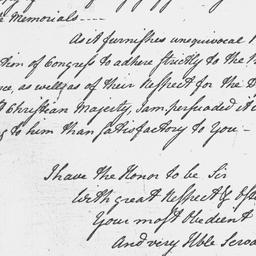 Memorials ----
As it furnishes unequivocal
tion of Congress to adhere strictly to the
ce, as well as of their Respect for the
Christian Majesty, I am persuaded it
to him than satisfactory to You -
I have the Honor to be Sir
With great Respect &
Your most Obedient
And very Hble